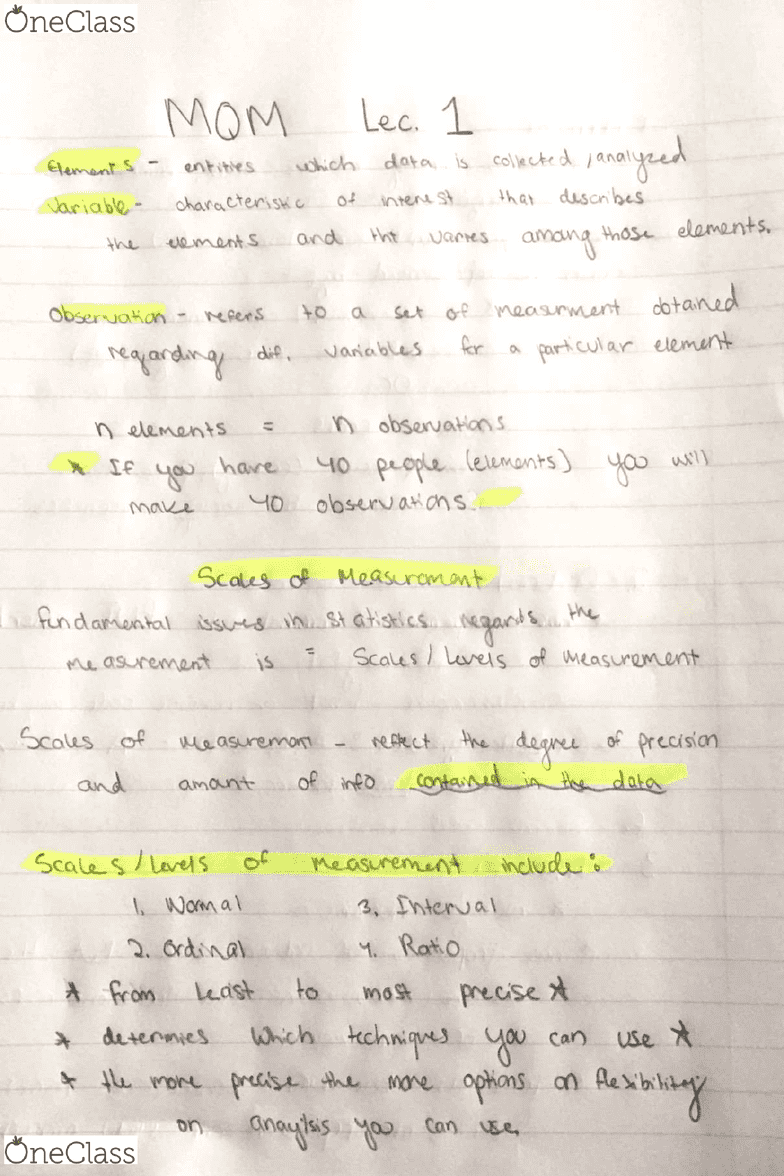 OneClass
MQM Lec. 1
Elements - entities which data is collected / analyzed
Variable - characteristic of interest that describes
the elements and tht varies among those elements.
Observation - refers to a set of measurment obtained
regarding dif. variables for a particular element
n elements = n observations
* If you have 40 people (elements) you will
make 40 observations.
Scales of Measurement
fundamental issues in statistics regards the
measurement is = Scales / Levels of Measurement
Scales of measurement - reflect the degree of precision
and amount of info contained in the data
Scales / levels of measurement include:
1. Nomal 3. Interval
2. Ordinal 4. Ratio
* from least to most precise *
* determies which techniques you can use *
* the more precise the more options on flexibility
on anaylsis you can use.
OneClass